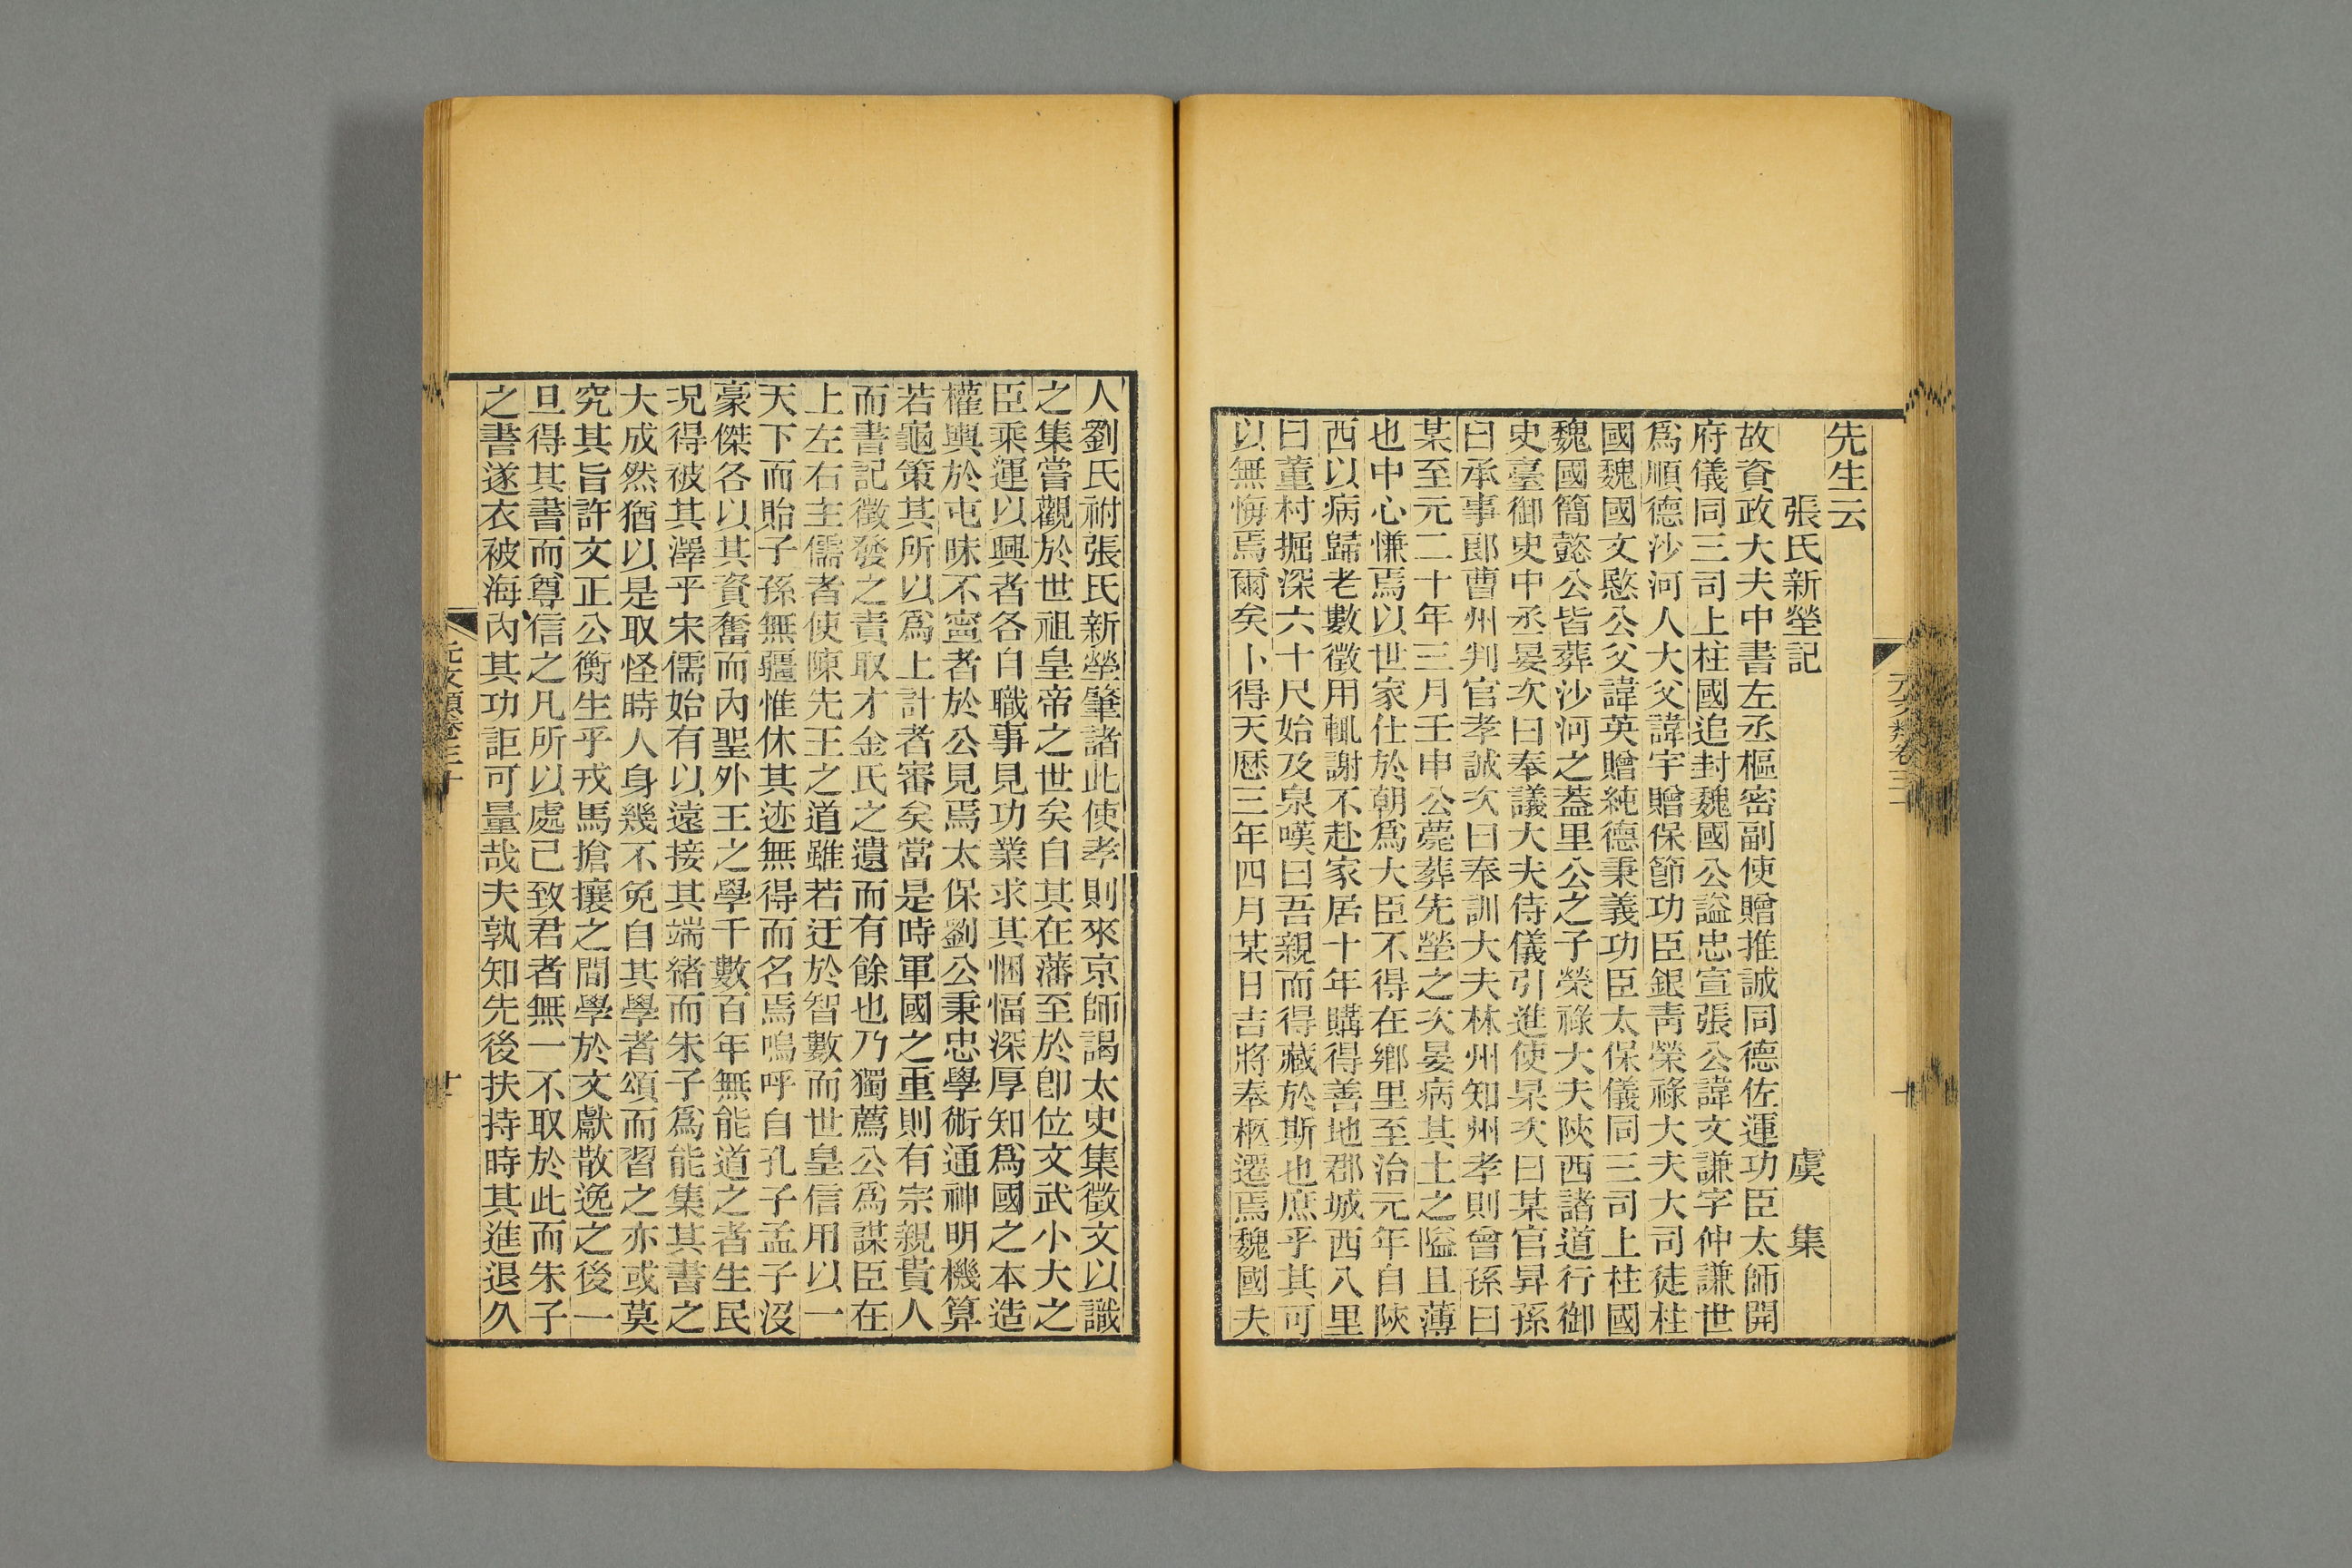 先生云
張氏新塋記 虞集
故資政大夫中書左丞樞密副使贈推誠同德佐運功臣太師開
府儀同三司上柱國追封魏國公謚忠宣張公諱文謙字仲謙世
爲順德沙河人大父諱宇贈保節功臣銀靑榮祿大夫大司徒柱
國魏國文愍公父諱英贈純德秉義功臣太保儀同三司上柱國
魏國簡懿公皆葬沙河之葢里公之子榮祿大夫陝西諸道行御
史臺御史中丞晏次曰奉議大夫侍儀引進使杲次曰某官昇孫
曰承事郞曹州判官孝誠次曰奉訓大夫林州知州孝則曾孫曰
某至元二十年三月壬申公薨葬先塋之次晏病其土之隘且薄
也中心慊焉以世家仕於朝爲大臣不得在鄉里至治元年自陝
西以病歸老數徵用輒謝不赴家居十年購得善地郡城西八里
曰董村掘深六十尺始及泉嘆曰吾親而得藏於斯也庶乎其可
以無悔焉爾矣卜得天曆三年四月某日吉將奉柩遷焉魏國夫
人劉氏祔張氏新塋肇諸此使孝則來京師謁太史集徵文以識
之集嘗觀於世祖皇帝之世矣自其在藩至於卽位文武小大之
臣乘運以興者各自職事見功業求其悃愊深厚知爲國之本造
權輿於屯昧不寧者於公見焉太保劉公秉忠學術通神明機算
若龜策其所以爲上計者審矣當是時軍國之重則有宗親貴人
而書記徵發之責取才金氏之遺而有餘也乃獨薦公爲謀臣在
上左右主儒者使陳先王之道雖若迂於智數而世皇信用以一
天下而貽子孫無疆惟休其迹無得而名焉嗚呼自孔子孟子沒
豪傑各以其資奮而內聖外王之學千數百年無能道之者生民
况得被其澤乎宋儒始有以遠接其端緒而朱子爲能集其書之
大成然猶以是取怪時人身幾不免自其學者頌而習之亦或莫
究其旨許文正公衡生乎戎馬搶攘之間學於文獻散逸之後一
旦得其書而尊信之凡所以處己致君者無一不取於此而朱子
之書遂衣被海內其功詎可量哉夫孰知先後扶持時其進退久
元文類卷三十
十